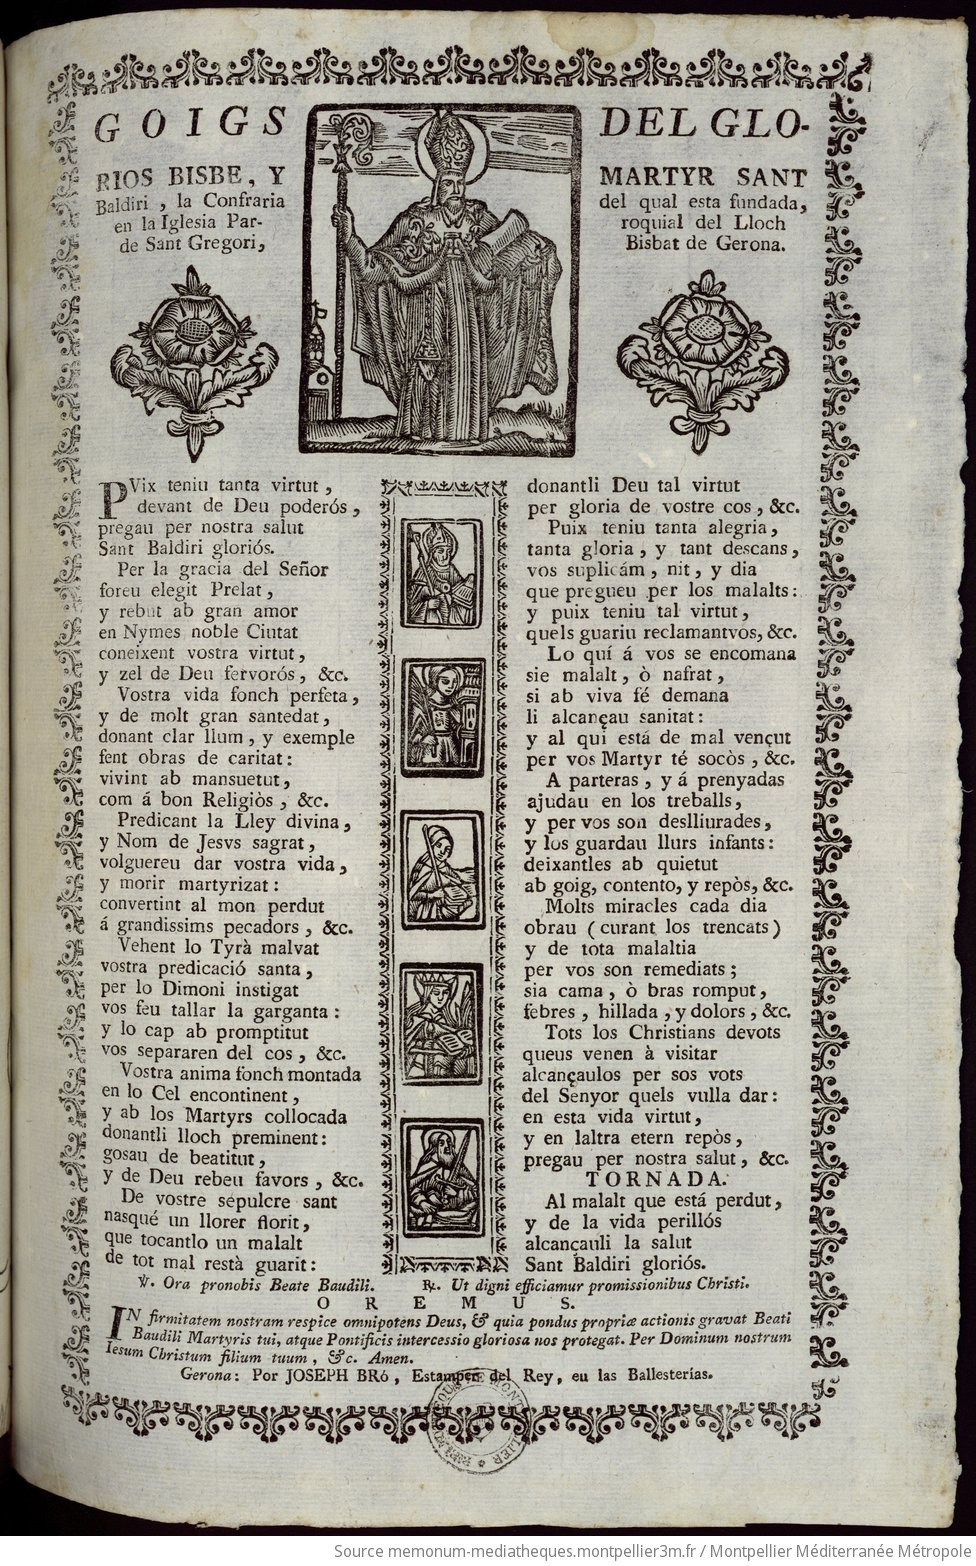 GOIGS DEL GLO-
RIOS BISBE, Y MARTYR SANT
Baldiri , la Confraria del qual esta fundada,
en la Iglesia Par- roquial del Lloch
de Sant Gregori, Bisbat de Gerona.
PVix teniu tanta virtut ,
devant de Deu poderós ,
pregau per nostra salut
Sant Baldiri gloriós.
Per la gracia del Señor
foreu elegit Prelat ,
y rebut ab gran amor
en Nymes noble Ciutat
coneixent vostra virtut ,
y zel de Deu fervorós , &c.
Vostra vida fonch perfeta ,
y de molt gran santedat ,
donant clar llum , y exemple
fent obras de caritat :
vivint ab mansuetut ,
com á bon Religiòs , &c.
Predicant la Lley divina ,
y Nom de Jesvs sagrat ,
volguereu dar vostra vida ,
y morir martyrizat :
convertint al mon perdut
á grandissims pecadors , &c.
Vehent lo Tyrà malvat
vostra predicació santa ,
per lo Dimoni instigat
vos feu tallar la garganta :
y lo cap ab promptitut
vos separaren del cos , &c.
Vostra anima fonch montada
en lo Cel encontinent ,
y ab los Martyrs collocada
donantli lloch preminent :
gosau de beatitut ,
y de Deu rebeu favors , &c.
De vostre sepulcre sant
nasqué un llorer florit ,
que tocantlo un malalt
de tot mal restà guarit :
donantli Deu tal virtut
per gloria de vostre cos , &c.
Puix teniu tanta alegria ,
tanta gloria , y tant descans ,
vos suplicám , nit , y dia
que pregueu per los malalts :
y puix teniu tal virtut ,
quels guariu reclamantvos, &c.
Lo quí á vos se encomana
sie malalt , ò nafrat ,
si ab viva fé demana
li alcançau sanitat :
y al qui está de mal vençut
per vos Martyr té socòs , &c.
A parteras , y á prenyadas
ajudau en los treballs ,
y per vos son deslliurades ,
y los guardau llurs infants :
deixantles ab quietut
ab goig, contento, y repòs, &c.
Molts miracles cada dia
obrau ( curant los trencats )
y de tota malaltia
per vos son remediats ;
sia cama , ò bras romput ,
febres , hillada , y dolors , &c.
Tots los Christians devots
queus venen à visitar
alcançaulos per sos vots
del Senyor quels vulla dar :
en esta vida virtut ,
y en laltra etern repòs ,
pregau per nostra salut , &c.
TORNADA.
Al malalt que está perdut ,
y de la vida perillós
alcançauli la salut
Sant Baldiri gloriós.
℣. Ora pronobis Beate Baudili. ℟. Ut digni efficiamur promissionibus Christi.
OREMUS.
IN firmitatem nostram respice omnipotens Deus, & quia pondus propriæ actionis gravat Beati
Baudili Martyris tui, atque Pontificis intercessio gloriosa nos protegat. Per Dominum nostrum
Iesum Christum filium tuum , &c. Amen.
Gerona : Por JOSEPH BRó , Estamper del Rey, en las Ballesterías.
Source memonum-mediatheques.montpellier3m.fr / Montpellier Méditerranée Métropole